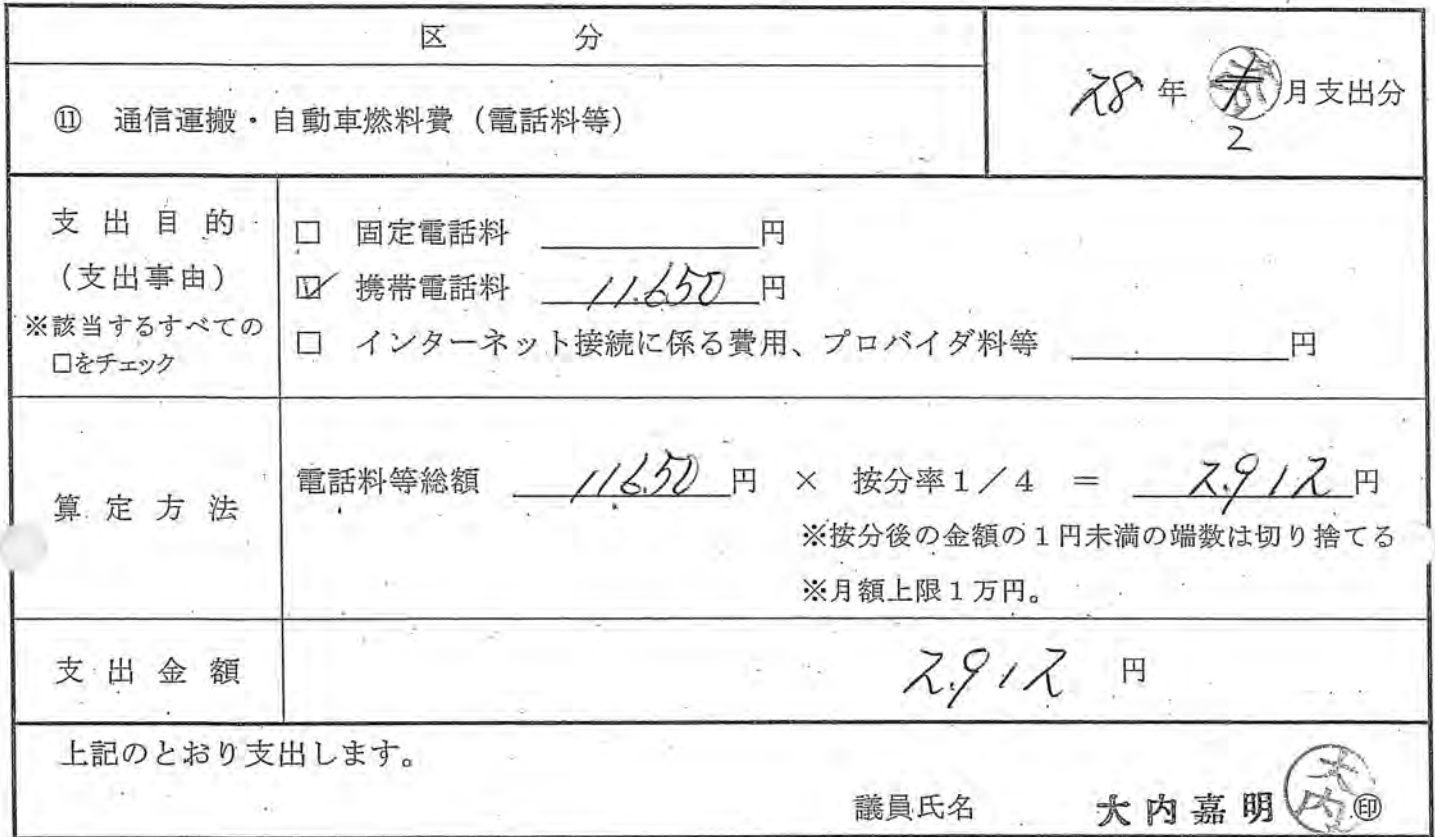 区　分
⑪ 通信運搬・自動車燃料費（電話料等）
28 年 月支出分
2
支出目的
（支出事由）
※該当するすべての
□をチェック
□ 固定電話料 円
☑ 携帯電話料 11.650 円
□ インターネット接続に係る費用、プロバイダ料等 円
算定方法
電話料等総額 11.650 円 × 按分率１／４ ＝ 2.912 円
※按分後の金額の１円未満の端数は切り捨てる
※月額上限１万円。
支出金額
2.912 円
上記のとおり支出します。
議員氏名 大内嘉明 ㊞
大内